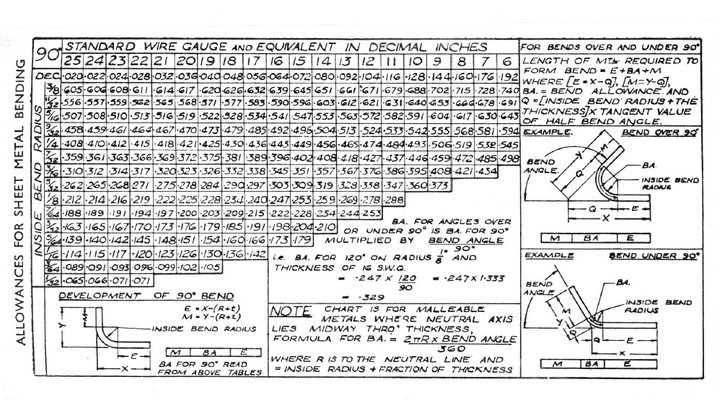 ALLOWANCES FOR SHEET METAL BENDING
90° STANDARD WIRE GAUGE AND EQUIVALENT IN DECIMAL INCHES
25 24 23 22 21 20 19 18 17 16 15 14 13 12 11 10 9 8 7 6
DEC. .020 .022 .024 .028 .032 .036 .040 .048 .056 .064 .072 .080 .092 .104 .116 .128 .144 .160 .176 .192
INSIDE BEND RADIUS
3/8 .605 .606 .608 .611 .614 .617 .620 .626 .632 .639 .645 .651 .661 .671 .679 .688 .702 .715 .728 .740
.556 .557 .559 .562 .565 .568 .571 .577 .583 .590 .596 .603 .612 .621 .631 .640 .653 .666 .678 .691
.507 .508 .510 .513 .516 .519 .522 .528 .534 .541 .547 .553 .563 .572 .582 .591 .604 .617 .630 .643
.458 .459 .461 .464 .467 .470 .473 .479 .485 .492 .504 .513 .524 .533 .542 .555 .568 .581 .594
1/4 .408 .410 .412 .415 .418 .421 .425 .430 .436 .443 .449 .456 .465 .474 .484 .493 .506 .519 .532 .545
.359 .361 .363 .366 .369 .372 .375 .381 .389 .396 .402 .408 .418 .427 .437 .446 .459 .472 .485 .498
.310 .312 .314 .317 .320 .323 .326 .332 .338 .345 .351 .357 .367 .376 .386 .395 .408 .421 .434
.262 .265 .268 .271 .275 .278 .284 .290 .297 .303 .309 .319 .328 .338 .347 .360 .373
1/8 .212 .214 .216 .219 .222 .225 .228 .234 .240 .247 .253 .259 .269 .278 .288
.188 .189 .191 .194 .197 .200 .203 .209 .215 .222 .228 .234 .244 .253
.163 .165 .167 .170 .173 .176 .179 .185 .191 .198 .204 .210
.139 .140 .142 .145 .148 .151 .154 .160 .166 .173 .179
.114 .115 .117 .120 .123 .126 .130 .136 .142
.089 .091 .093 .096 .099 .102 .105
.065 .066 .071 .071
BA. FOR ANGLES OVER
OR UNDER 90° IS BA. FOR 90°
MULTIPLIED BY BEND ANGLE
90°
i.e. BA. FOR 120° ON RADIUS 1/8" AND
THICKNESS OF 16 S.W.G.
= .247 X 120/90 = .247 X 1.333
= .329
DEVELOPMENT OF 90° BEND
E = X-(R+t)
M = Y-(R+t)
INSIDE BEND RADIUS
Y
M
E
X
M BA E
BA FOR 90° READ
FROM ABOVE TABLES
NOTE CHART IS FOR MALLEABLE
METALS WHERE NEUTRAL AXIS
LIES MIDWAY THRO' THICKNESS,
FORMULA FOR BA. = 2πR X BEND ANGLE
360
WHERE R IS TO THE NEUTRAL LINE AND
= INSIDE RADIUS + FRACTION OF THICKNESS
FOR BENDS OVER AND UNDER 90°
LENGTH OF MTL REQUIRED TO
FORM BEND = E+BA+M
WHERE [E=X-Q], [M=Y-Q],
BA. = BEND ALLOWANCE AND
Q = [INSIDE BEND RADIUS + THE
THICKNESS] X TANGENT VALUE
OF HALF BEND ANGLE.
EXAMPLE. BEND OVER 90°
BEND
ANGLE.
M
Y
Q
BA.
INSIDE BEND
RADIUS
Q E
X
M BA E
EXAMPLE BEND UNDER 90°
BEND
ANGLE
M
Y
Q
BA.
INSIDE BEND
RADIUS
Q E
X
M BA E